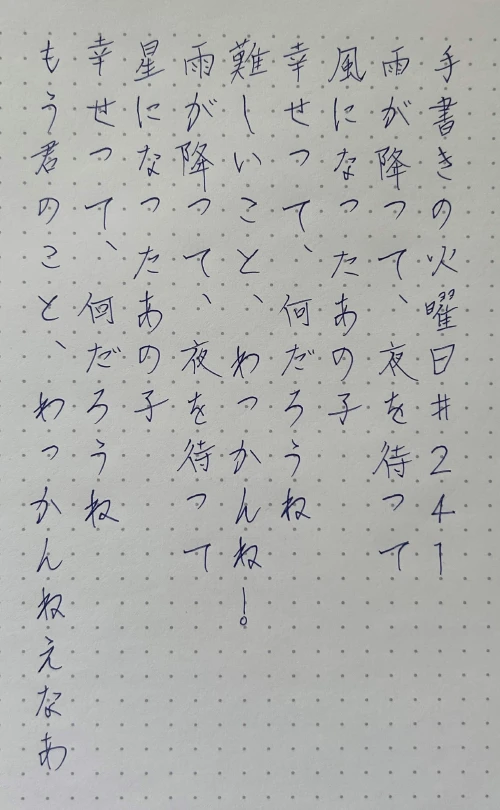 手書きの火曜日#241
雨が降って、夜を待って
風になったあの子
幸せって、何だろうね
難しいこと、わっかんね!
雨が降って、夜を待って
星になったあの子
幸せって、何だろうね
もう君のこと、わっかんねえなあ